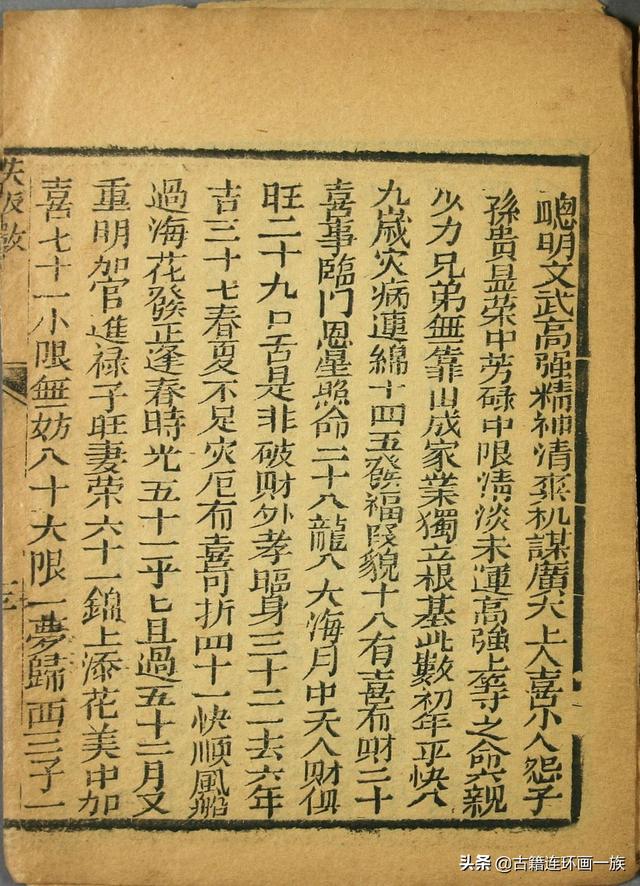 聰明文武高强精神清爽机謀廣大上人喜小人怨子
孫貴显荣中劳碌中限淸淡末運高強上等之命六親
少力兄弟無靠出成家業獨立根基此數初年平快八
九歲灾病連綿十四五發福改貌十八有喜有財二十
喜事臨門恩星照命二十八龍入大海月中天人財俱
旺二十九口舌是非破財外孝臨身三十二一去六年
吉三十七春夏不足灾厄有喜可折四十一快順風船
過海花發正逢春時光五十一平匕且過五十二月又
重明加官進禄子旺妻荣六十一錦上添花美中加
喜七十一小限無妨八十大限一夢歸西三子一
头条 @古籍连环画一族